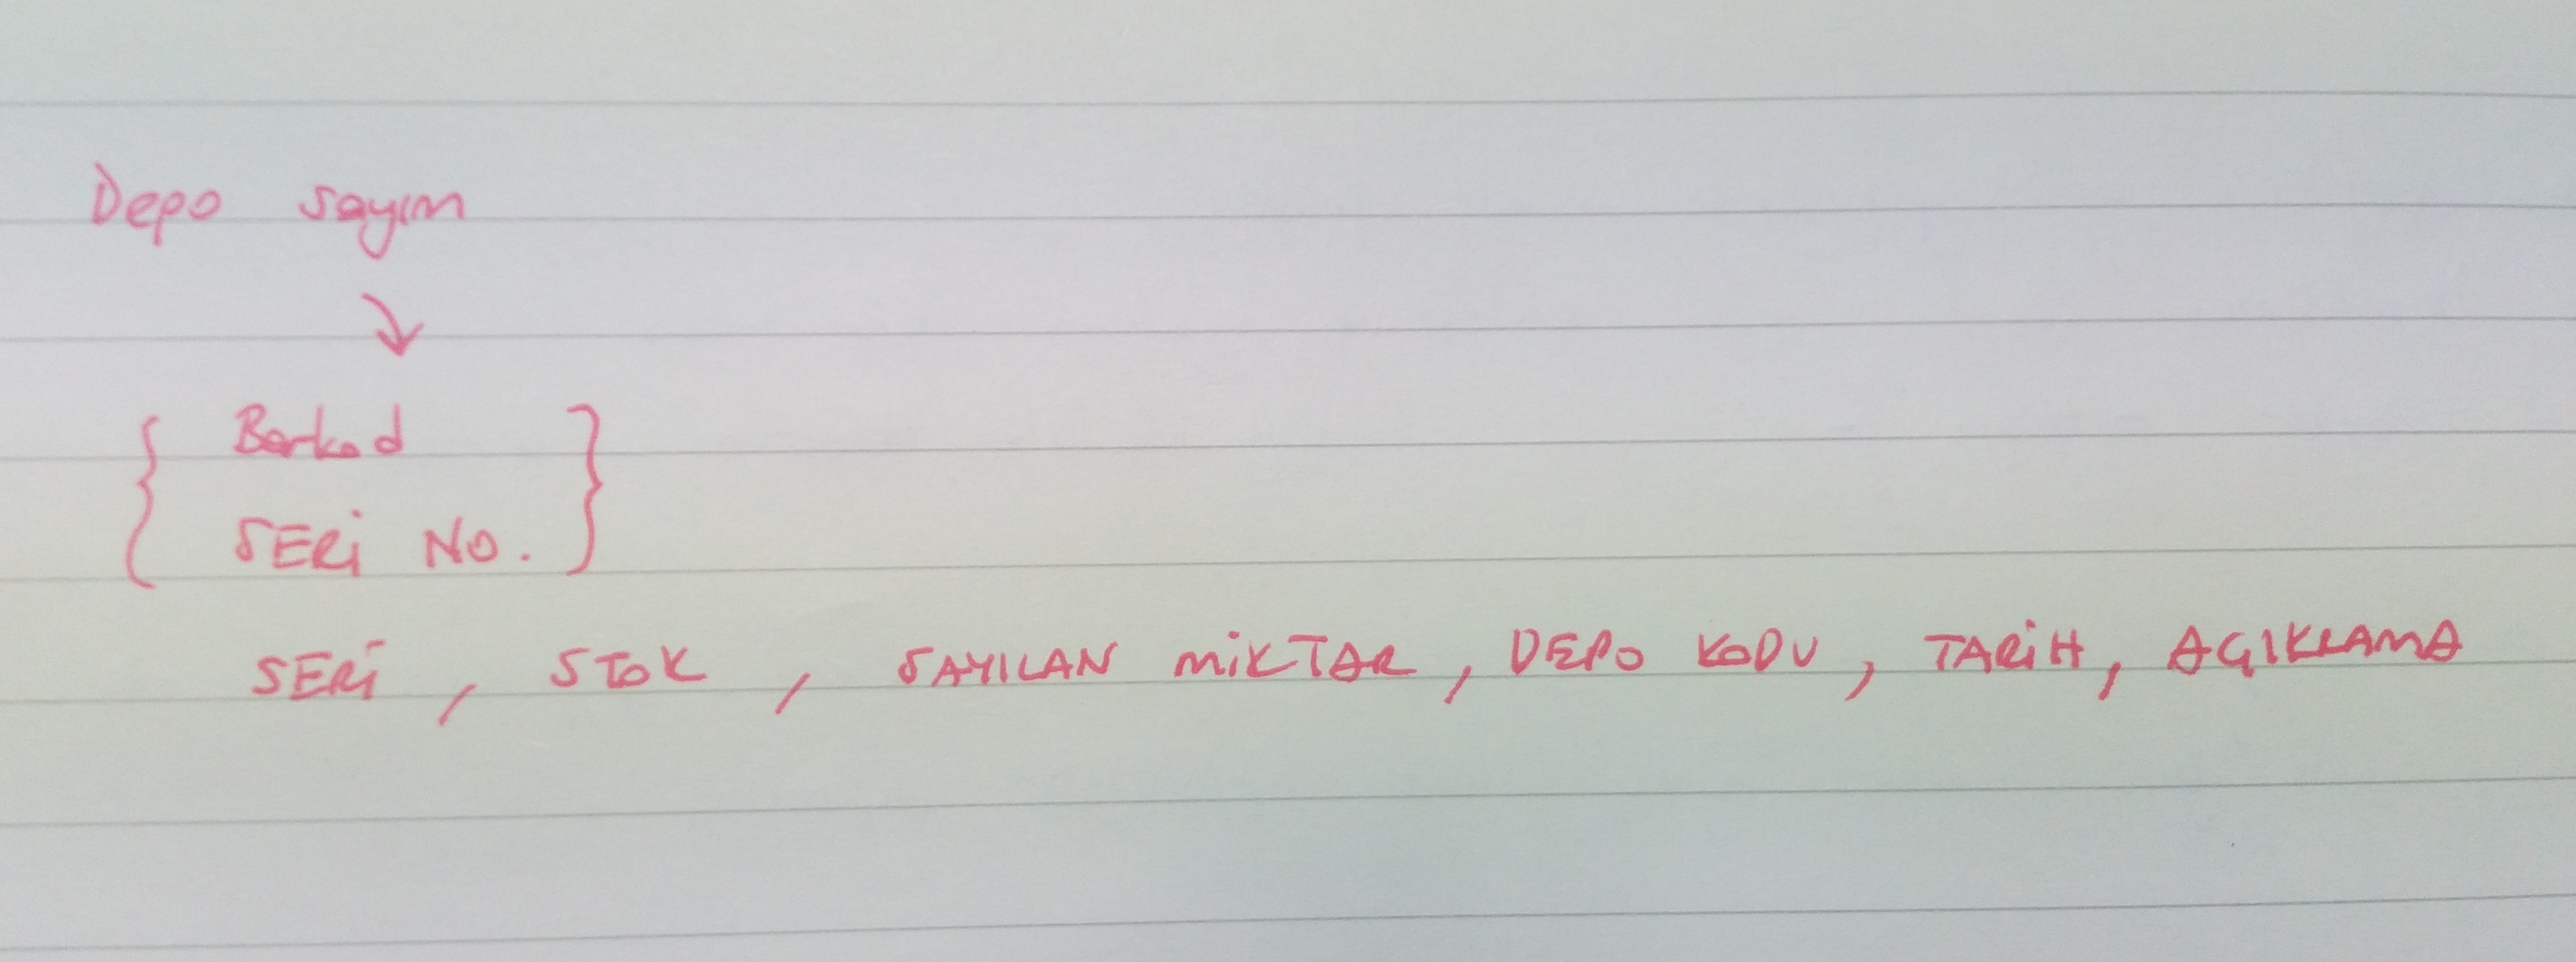 Depo sayım
↓
{ Barkod }
{ SERİ NO. }
SERİ , STOK , SAYILAN MİKTAR , DEPO KODU , TARİH , AÇIKLAMA